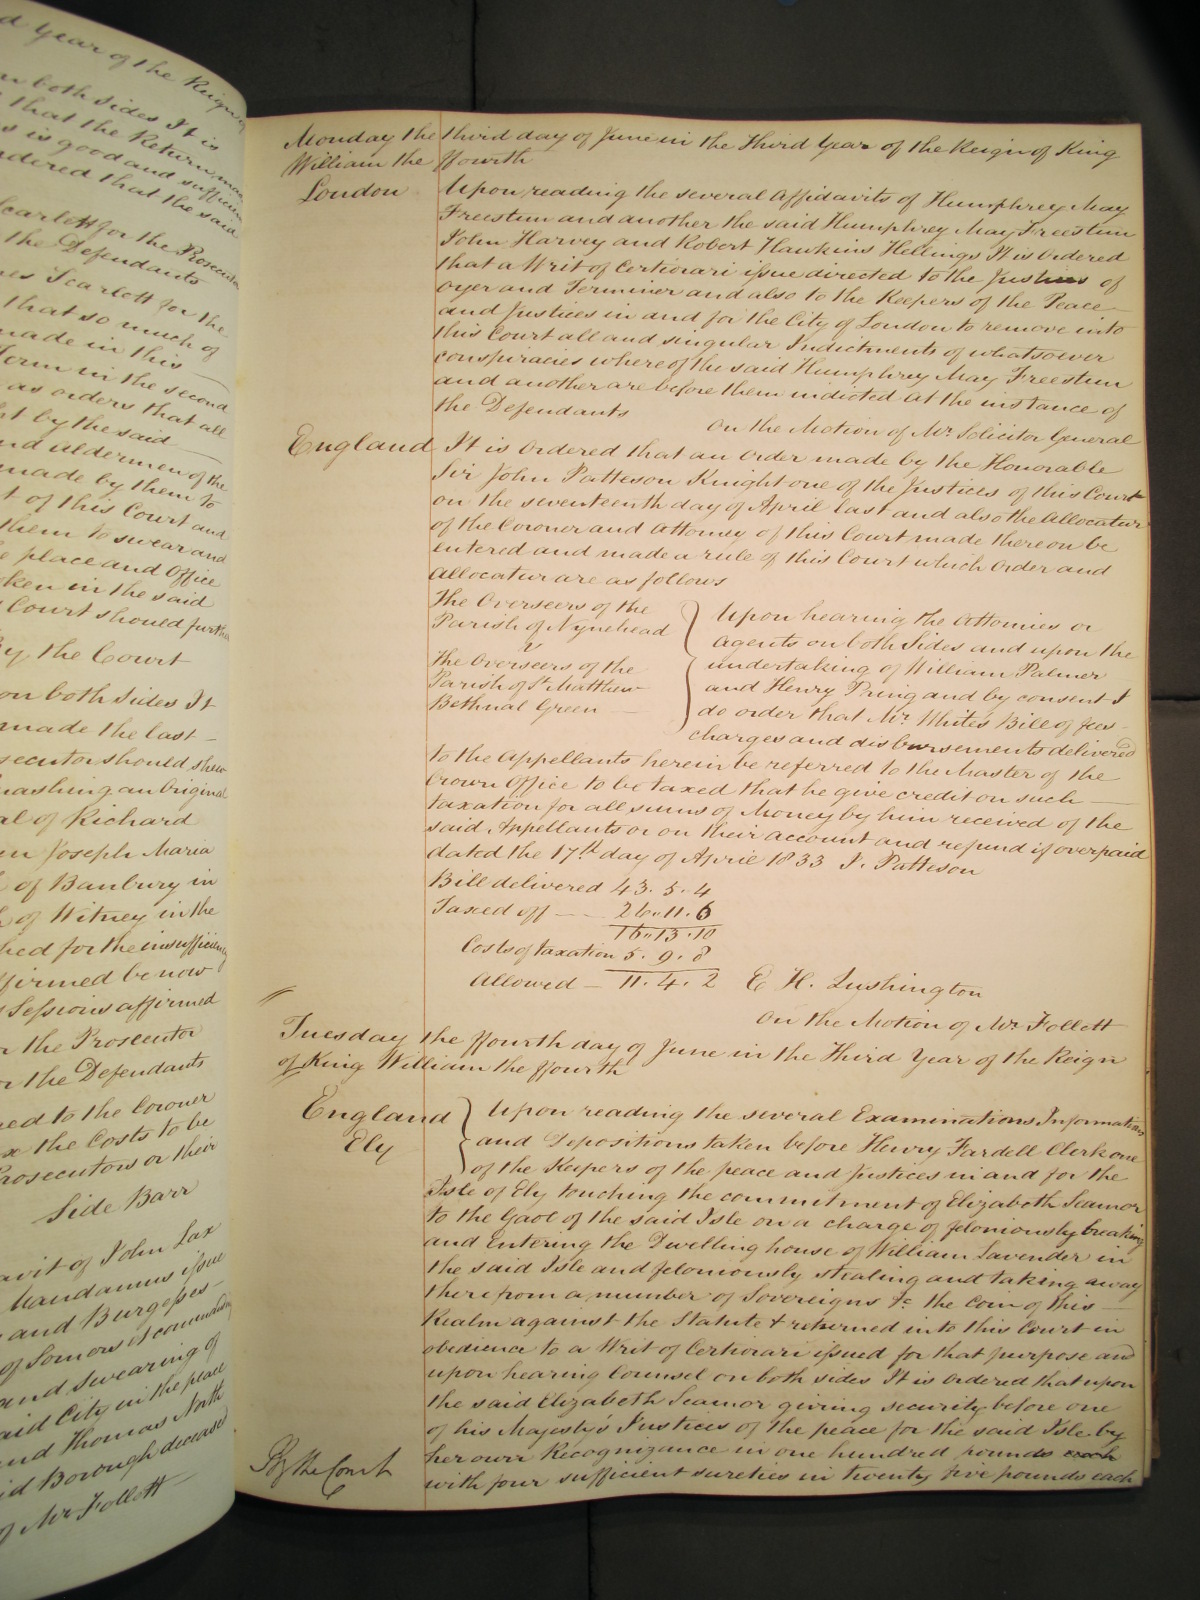 d Year of the Reign of
n both sides It is
that the Return made
is good and sufficient
ordered that the said
Scarlett for the Prosecutor
the Defendants
es Scarlett for the
that so much of
made in this
Term in the second
as orders that all
t by the said
nd aldermen of the
made by them to
t of this Court and
them to swear and
e place and Office
ken in the said
Court should further
By the Court
on both Sides It
made the last
secutor should shew
uashing an Original
al of Richard
en Joseph Maria
of Banbury in
of Witney in the
hed for the insufficiency
firmed be now
Sessions affirmed
r the Prosecutor
or the Defendants
red to the Coroner
x the Costs to be
Prosecutors or their
Side Barr
avit of John Lax
Mandamus issue
and Burgesses
of Somerset commanding
and swearing of
aid City in the place
nd Thomas North
id Borough deceased
of Mr Follett
Monday the third day of June in the Third Year of the Reign of King
William the ffourth
London Upon reading the several Affidavits of Humphrey May
Freestun and another the said Humphrey May Freestun
John Harvey and Robert Hawkins Hellings It is Ordered
that a Writ of Certiorari issue directed to the Justices of
Oyer and Terminer and also to the Keepers of the Peace
and Justices in and for the City of London to remove into
this Court all and singular Indictments of whatsoever
conspiracies whereof the said Humphrey May Freestun
and another are before them indicted at the instance of
the Defendants
On the Motion of Mr. Solicitor General
England It is Ordered that an Order made by the Honorable
Sir John Patteson Knight one of the Justices of this Court
on the seventeenth day of April last and also the Allocatur
of the Coroner and Attorney of this Court made thereon be
entered and made a rule of this Court which Order and
Allocatur are as follows
The Overseers of the
Parish of Nynehead
v
The Overseers of the
Parish of St Matthew
Bethnal Green
Upon hearing the Attornies or
Agents on both Sides and upon the
undertaking of William Palmer
and Henry Pring and by consent I
do order that Mr. White's Bill of fees
charges and disbursements delivered
to the Appellants herein be referred to the Master of the
Crown Office to be taxed that he give credit on such
taxation for all sums of Money by him received of the
said Appellants or on their account and refund if overpaid
dated the 17th day of April 1833 J. Patteson
Bill delivered 43. 5. 4
Taxed off 26.. 11. 6
16.. 13. 10
Costs of taxation 5. 9. 8
Allowed 11. 4. 2 E H. Lushington
On the Motion of Mr Follett
Tuesday the ffourth day of June in the Third Year of the Reign
of King William the ffourth
England
Ely
Upon reading the several Examinations Informations
and Depositions taken before Henry Fardell Clerk one
of the Keepers of the peace and Justices in and for the
Isle of Ely touching the commitment of Elizabeth Seamor
to the Gaol of the said Isle on a charge of feloniously breaking
and Entering the Dwelling house of William Lavender in
the said Isle and feloniously stealing and taking away
therefrom a number of Sovereigns &c the Coin of this
Realm against the Statute & returned into this Court in
obedience to a Writ of Certiorari issued for that purpose and
upon hearing Counsel on both sides It is Ordered that upon
the said Elizabeth Seamor giving security before one
of his Majesty's Justices of the peace for the said Isle by
her own Recognizance in one hundred pounds each
with four sufficient sureties in twenty five pounds each
By the Court